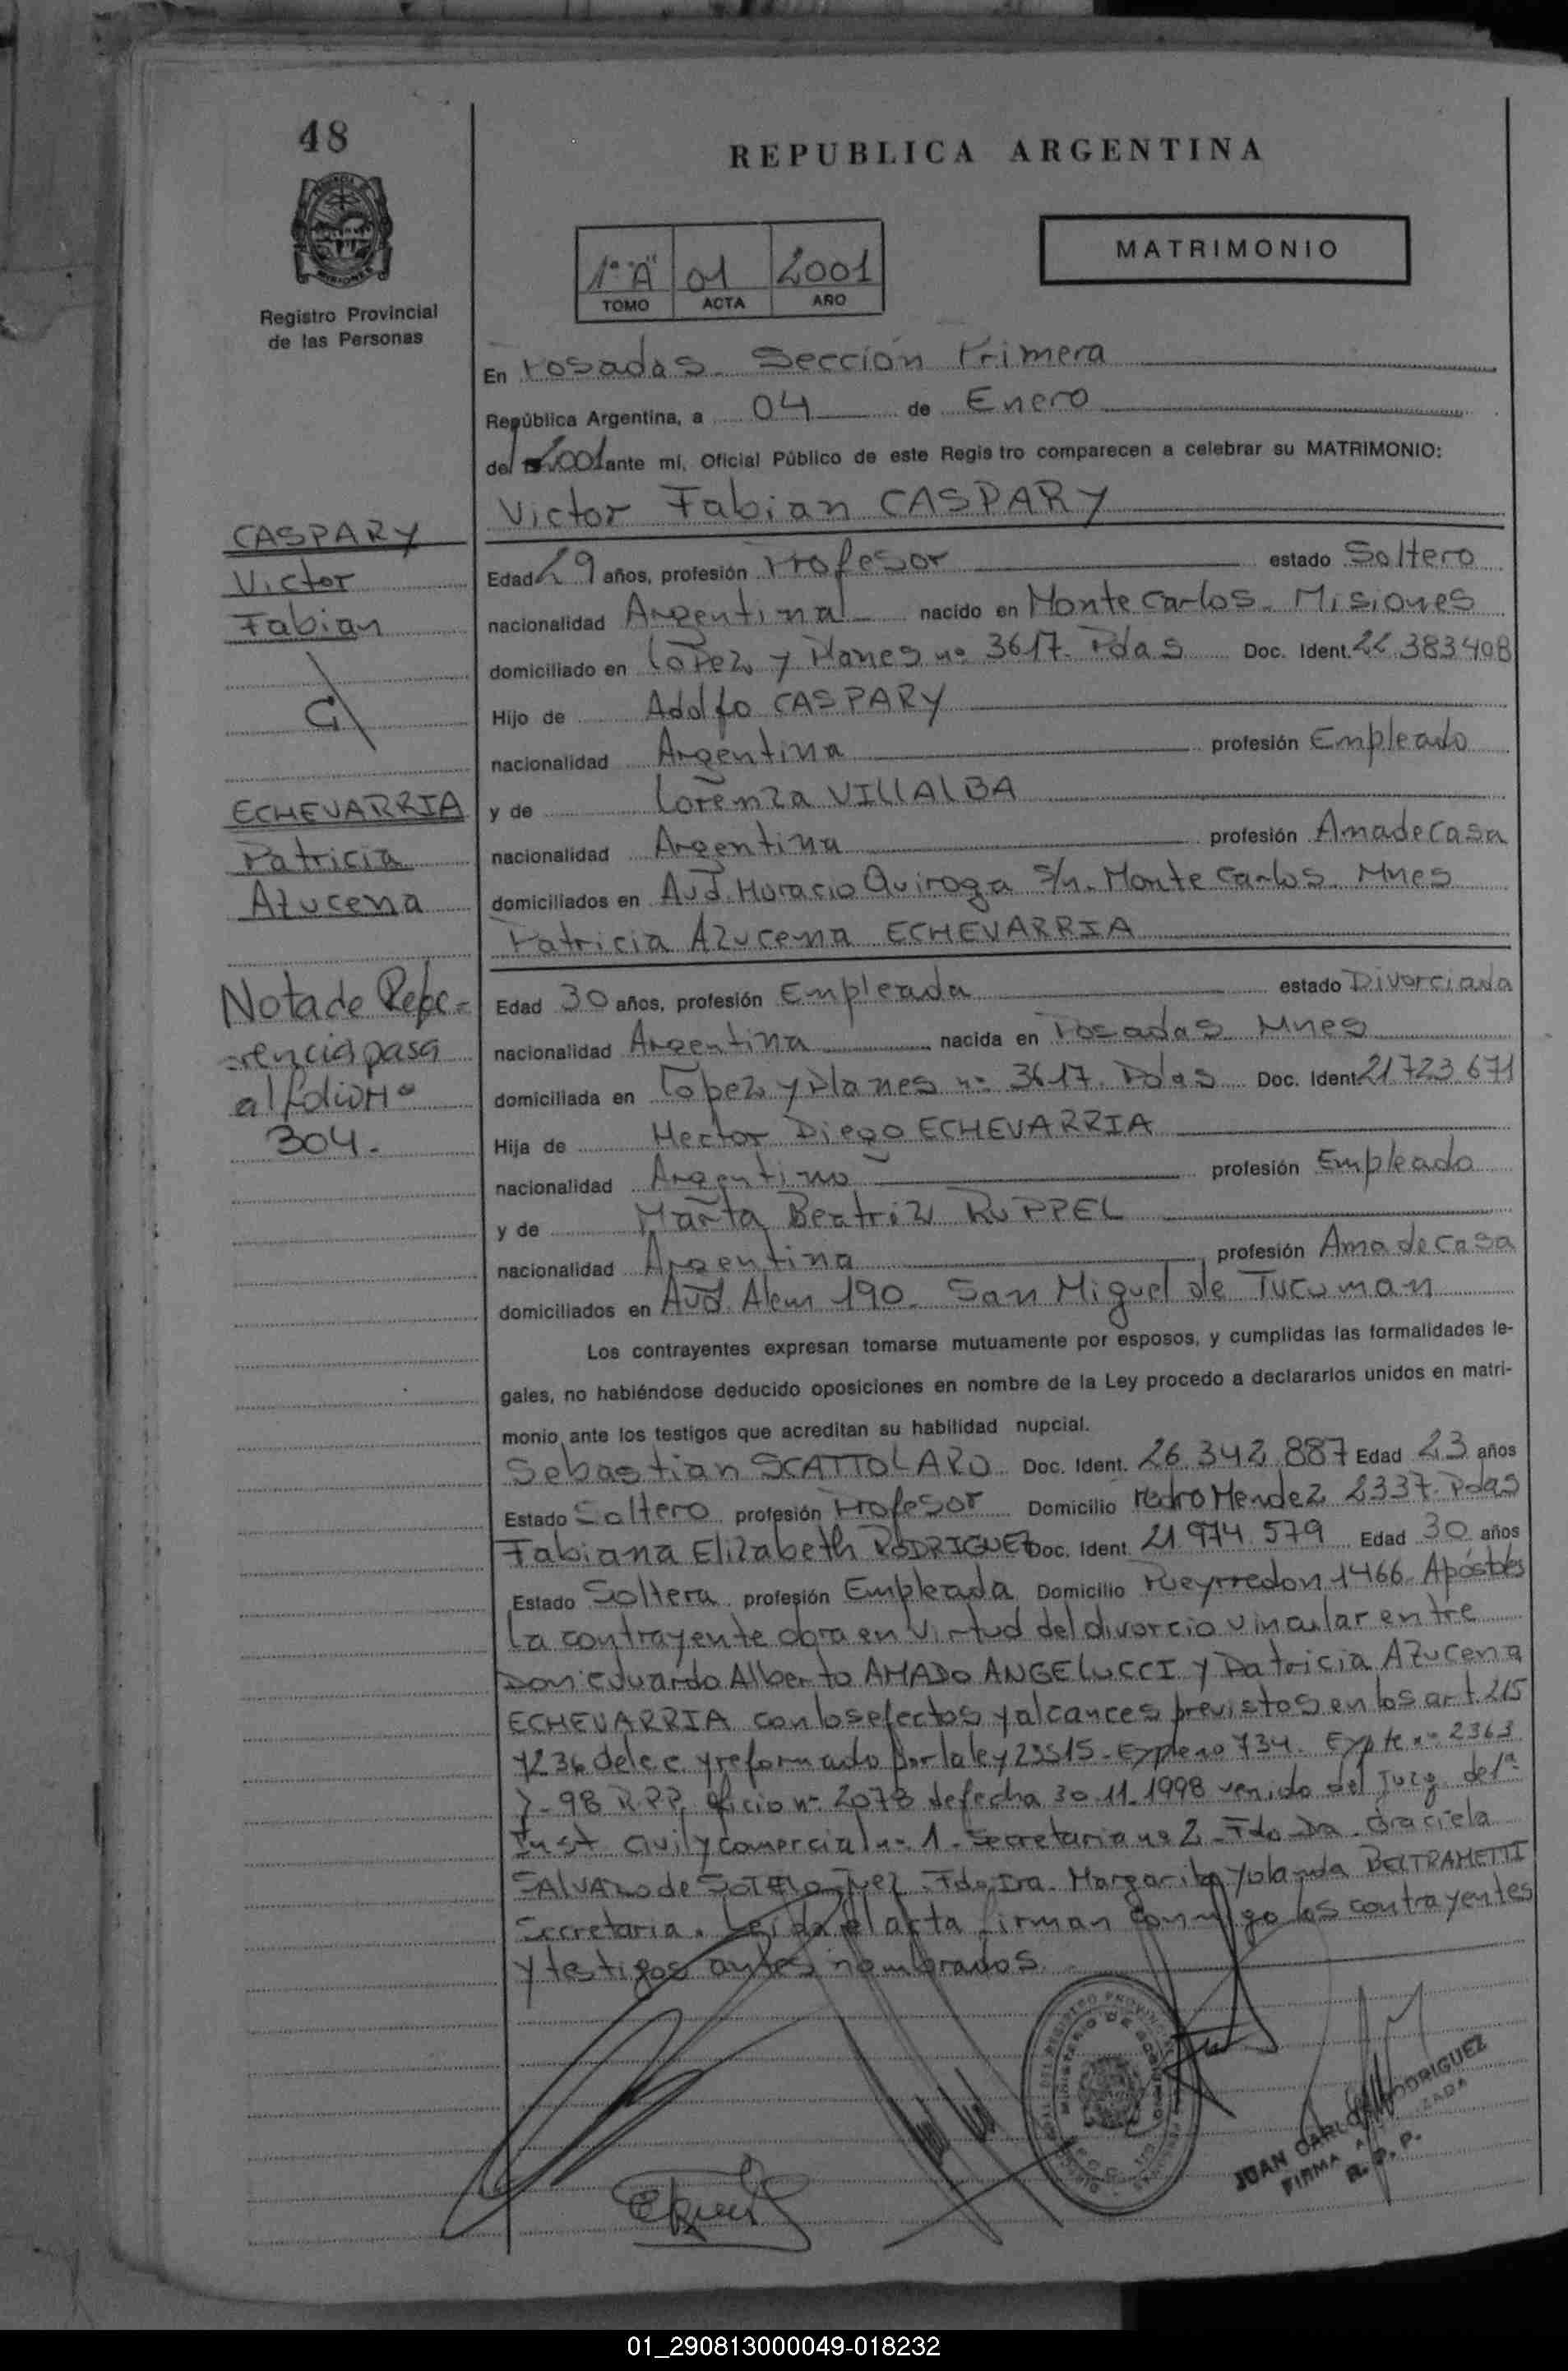 48
REPUBLICA ARGENTINA
MATRIMONIO
1º "A" 01 2001
TOMO ACTA AÑO
Registro Provincial
de las Personas
En Posadas. Sección Primera
República Argentina, a 04 de Enero
del 2001 ante mí, Oficial Público de este Registro comparecen a celebrar su MATRIMONIO:
Victor Fabian CASPARY
CASPARY
Victor
Fabian
Edad 29 años, profesión Profesor estado Soltero
nacionalidad Argentina nacido en Monte Carlos. Misiones
domiciliado en Lopez y Planes nº 3617. Pdas Doc. Ident. 22.383.408
Hijo de Adolfo CASPARY
nacionalidad Argentina profesión Empleado
y de Lorenza VILLALBA
nacionalidad Argentina profesión Ama de Casa
domiciliados en Avd. Horacio Quiroga S/n. Monte Carlos. Mnes
Patricia Azucena ECHEVARRIA
ECHEVARRIA
Patricia
Azucena
Nota de Refe=
=rencia pasa
al folio Nº
304.-
Edad 30 años, profesión Empleada estado Divorciada
nacionalidad Argentina nacida en Posadas Mnes
domiciliada en Lopez y Planes nº 3617. Pdas Doc. Ident. 21.723.671
Hija de Hector Diego ECHEVARRIA
nacionalidad Argentino profesión Empleado
y de Marta Beatriz RUPPEL
nacionalidad Argentina profesión Ama de Casa
domiciliados en Avd. Alem 190. San Miguel de Tucuman
Los contrayentes expresan tomarse mutuamente por esposos, y cumplidas las formalidades le-
gales, no habiéndose deducido oposiciones en nombre de la Ley procedo a declararlos unidos en matri-
monio ante los testigos que acreditan su habilidad nupcial.
Sebastian SCATTOLARO Doc. Ident. 26.342.887 Edad 23 años
Estado Soltero profesión Profesor Domicilio Pedro Mendez 2337. Pdas
Fabiana Elizabeth RODRIGUEZ Doc. Ident. 21.974.579 Edad 30 años
Estado Soltera profesión Empleada Domicilio Pueyrredon 1466. Apóstoles
La contrayente obra en Virtud del divorcio vincular entre
Don Eduardo Alberto AMADO ANGELUCCI y Patricia Azucena
ECHEVARRIA con los efectos y alcances previstos en los art. 215
y 236 del c.c. y reformado por la ley 23515. Expte nº 734. Expte nº 2363
98 R.P.P. Oficio nº 2078 de fecha 30.11.1998 venido del Juzg. de 1ª
Inst. Civil y Comercial nº 1. Secretaria nº 2. Fdo Dra. Graciela
SALVAZO de SOTELO Juez. Fdo. Dra. Margarita Yolanda BELTRAMETTI
Secretaria. Leida el acta firman conmigo los contrayentes
y testigos antes nombrados.
JUAN CARLOS RODRIGUEZ
FIRMA AUTORIZADA
R. P. P.
01_290813000049-018232